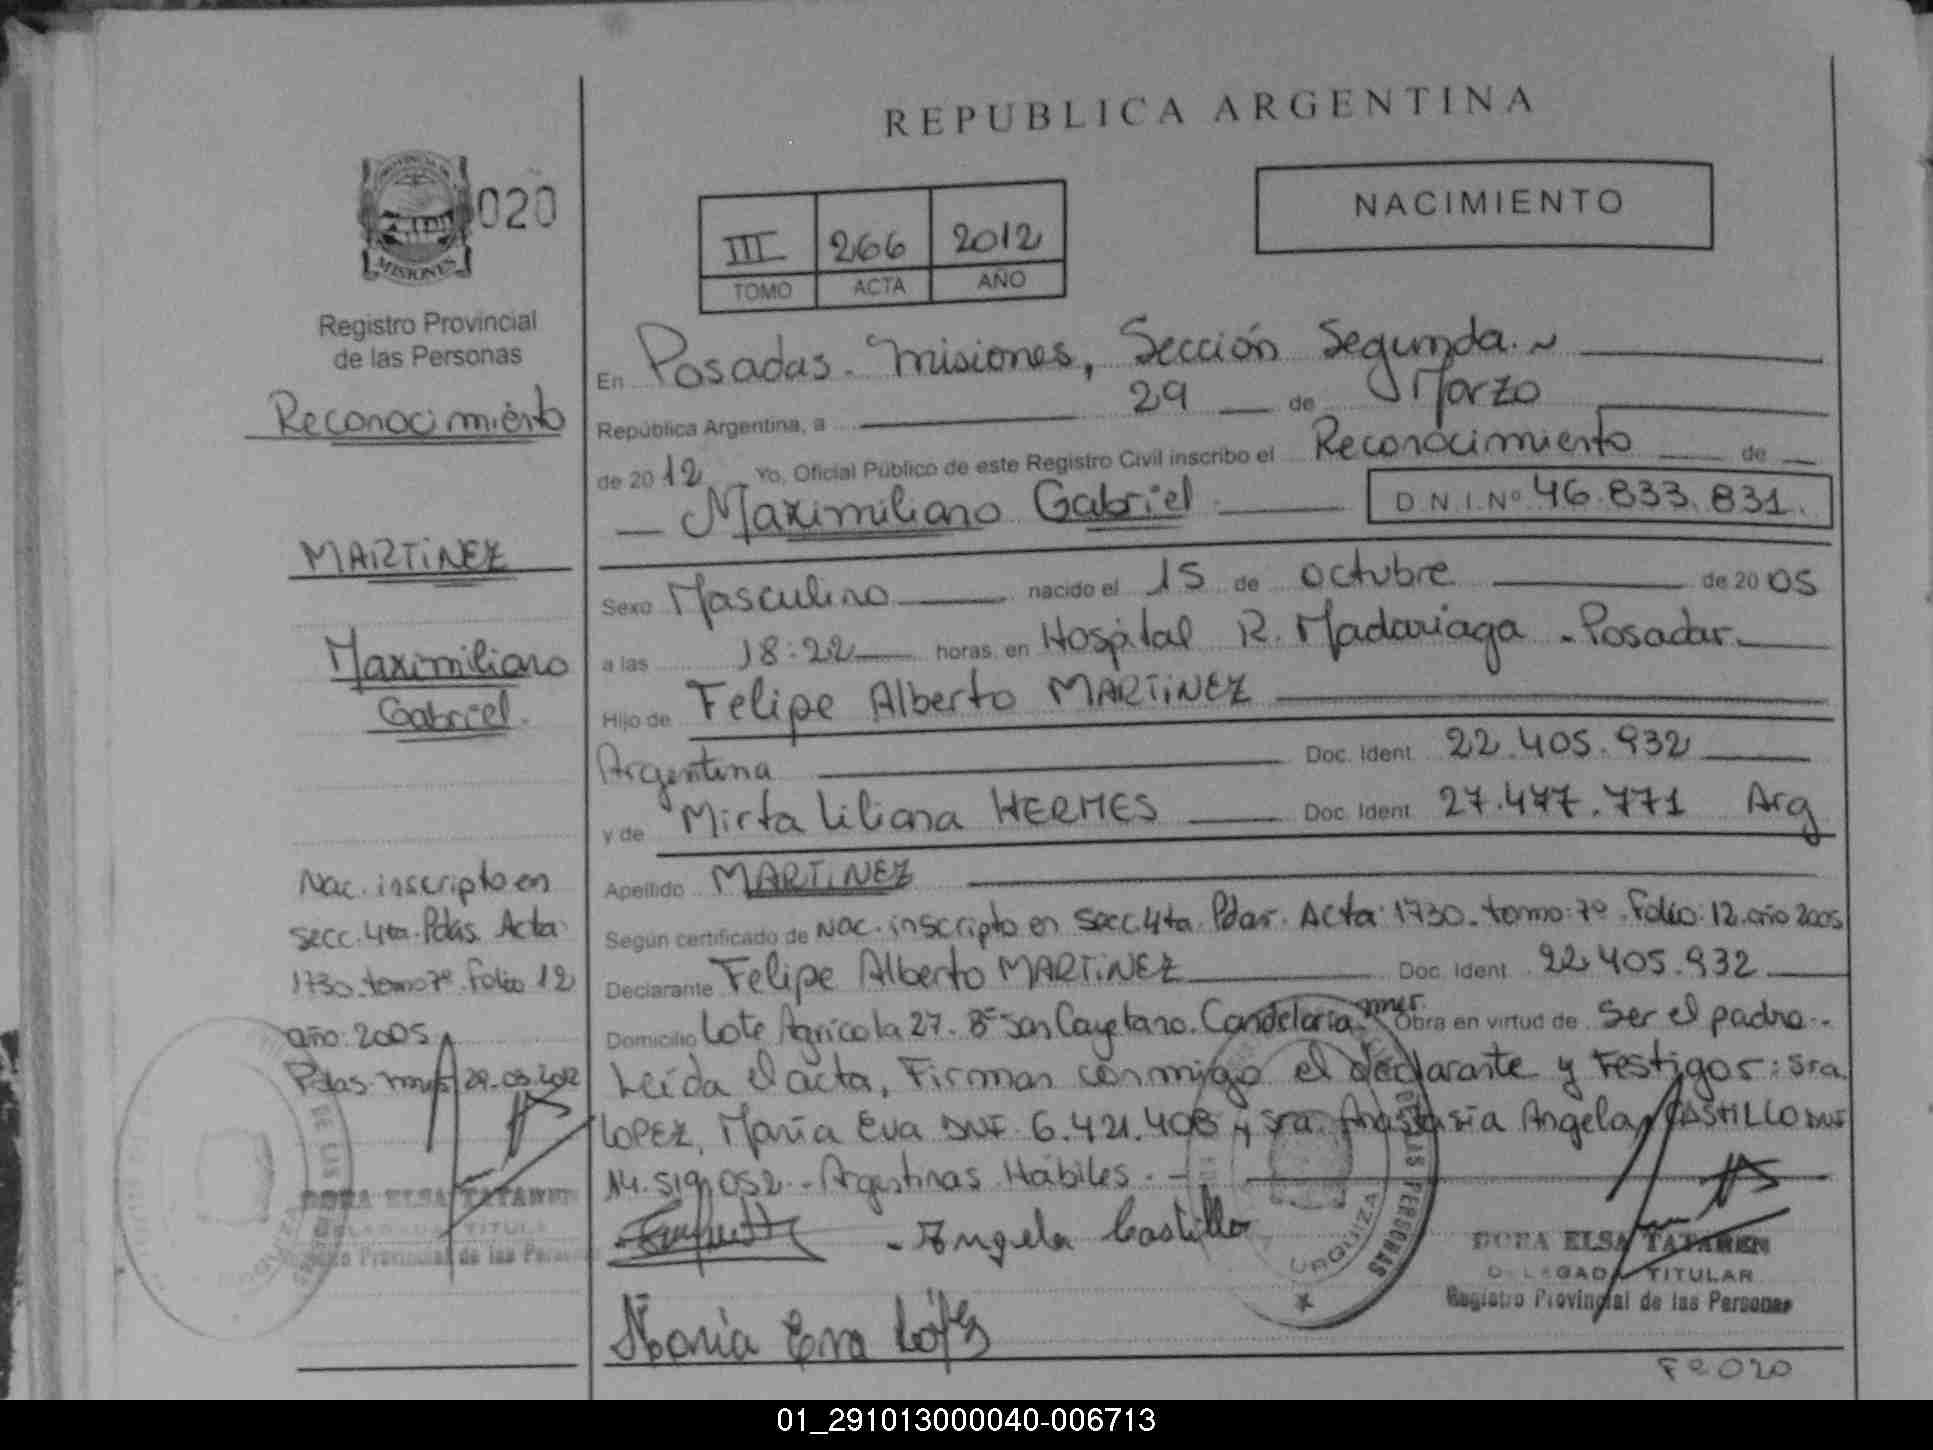 REPUBLICA ARGENTINA
020
MISIONES
Registro Provincial
de las Personas
Reconocimiento
MARTiNEZ
Maximiliano
Gabriel.
Nac. inscripto en
secc. 4ta. Pdas. Acta:
1730. tomo 7º. Folio 12
año: 2005
Pdas. mnes 29-03-2012
DORA ELSA TATAREN
DELEGADA TITULAR
Registro Provincial de las Personas
NACIMIENTO
III 266 2012
TOMO ACTA AÑO
En Posadas. Misiones, Sección Segunda.
República Argentina, a 29 de Marzo
de 2012 Yo, Oficial Público de este Registro Civil inscribo el Reconocimiento de
Maximiliano Gabriel D.N.I.Nº 46.833.831.
Sexo Masculino nacido el 15 de octubre de 2005
a las 18:22 horas, en Hospital R. Madariaga - Posadas.
Hijo de Felipe Alberto MARTiNEZ
Argentina Doc. Ident. 22.405.932
y de Mirta Liliana HERMES Doc. Ident. 27.477.771 Arg
Apellido MARTiNEZ
Según certificado de Nac. inscripto en Secc. 4ta. Pdas. Acta: 1730. tomo: 7º. Folio: 12. año 2005
Declarante Felipe Alberto MARTiNEZ Doc. Ident. 22.405.932
Domicilio Lote Agricola 27. Bº San Cayetano. Candelaria. mnes. Obra en virtud de Ser el padre.
Leída el acta, Firman conmigo el declarante y Testigos: Sra.
LOPEZ, María Eva DNI 6.421.408 y Sra. Anastasia Angela CASTILLO DNI
14.519.052. Argentinas Hábiles.
Angela Castillo
URQUIZA
DE LAS PERSONAS
DORA ELSA TATAREN
DELEGADA TITULAR
Registro Provincial de las Personas
Maria Eva López
Fº 020
01_291013000040-006713